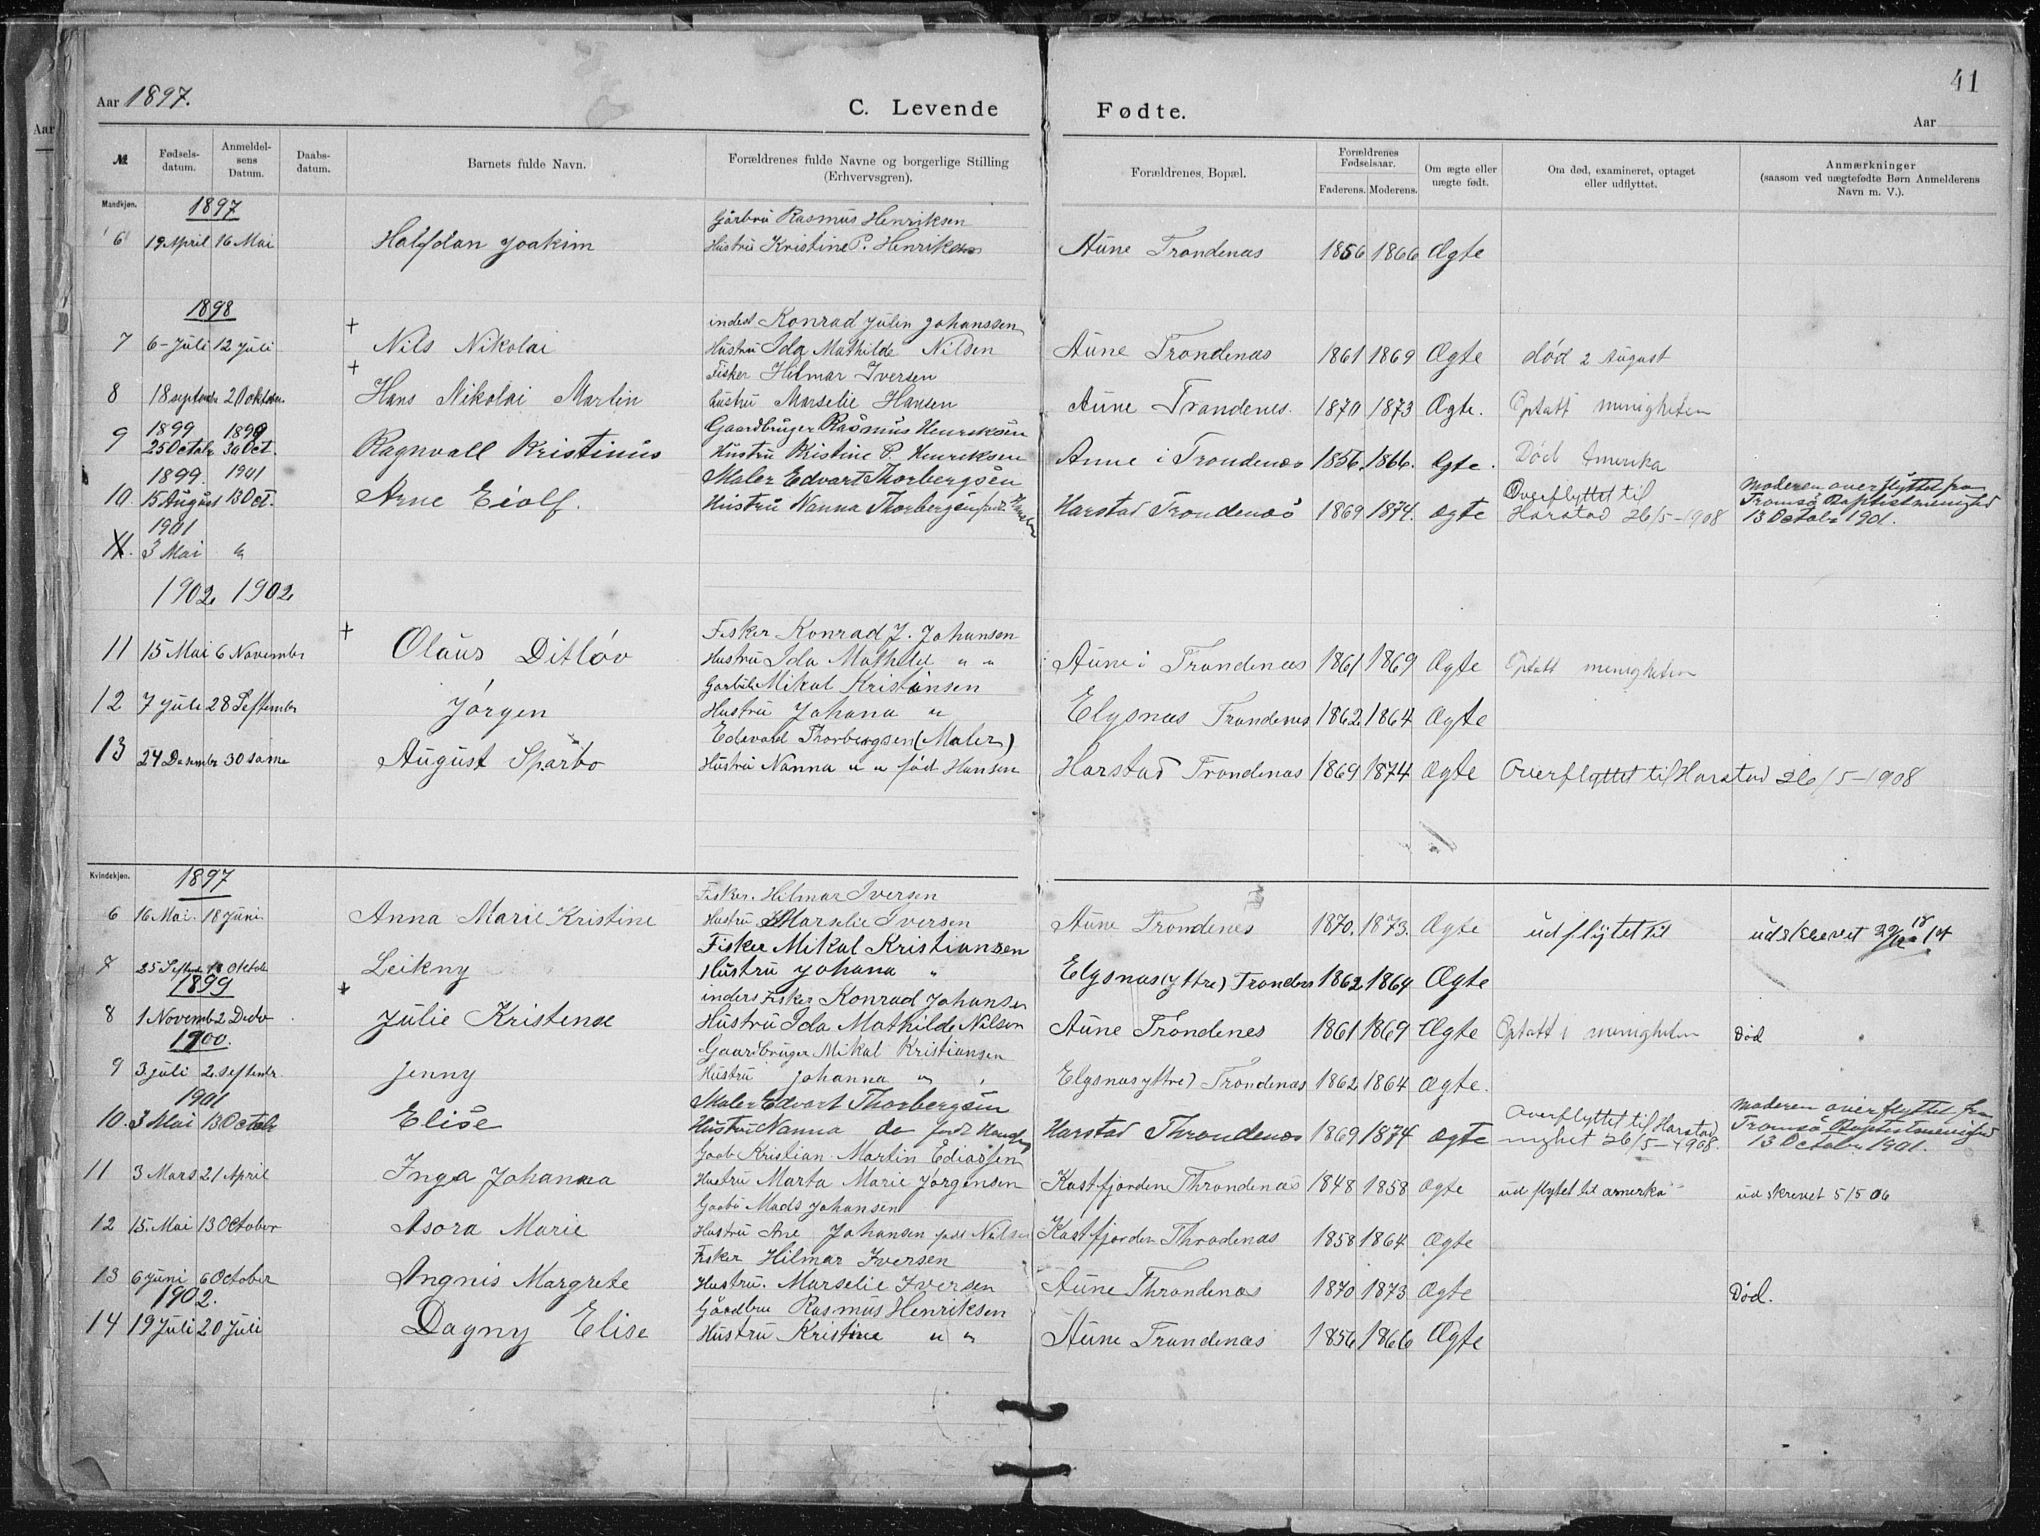 41
Aar 1897.
C. Levende Fødte.
Aar
№ Fødsels-datum. Anmeldel-sens Datum. Daabs-datum. Barnets fulde Navn. Forældrenes fulde Navne og borgerlige Stilling (Erhvervsgren). Forældrenes Bopæl. Forældrenes Fødselsaar. Faderens. Moderens. Om ægte eller uægte født. Om død, examineret, optaget eller udflyttet. Anmærkninger (saasom ved uægtefødte Børn Anmelderens Navn m. V.).
Mandkjøn.
1897
Gårbru Rasmus Henriksen
6 19 April 16 Mai Halfdan Joakim Hustru Kristine P. Henriksen Aune Trondenæs 1856 1866 Ægte
1898
inderst Konrad Julin Johanssen
7 6-Juli 12 Juli + Nils Nikolai Hustru Ida Mathilde Nilsen Aune Trondenæs 1861 1869 Ægte død 2 August
Fisker Hilmar Iversen
8 18 septmbr 20 oktober + Hans Nikolai Martin hustru Marselie Hansen Aune Trondenes. 1870 1873 Ægte. Optatt menigheten
1899 1899 Gaardbruger Rasmus Henriksen
9 25 Octobr 30 Oct. Ragnvall Kristinius Hustru Kristine P. Henriksen Aune i Trondenæs 1856. 1866. Ægte. Død Amerika
1899. 1901 Maler Edvart Thorbergsen
10. 15 August 13 Oct. Arne Eiolf. Hustru Nanna Thorbergsen født Hansen Harstad Trondenæs 1869 1874. ægte Overflyttet til Harstad 26/5-1908 Moderen overflyttet fra Tromsø Baptistmenighed 13 October 1901.
1901
11. 3 Mai "
1902 1902
Fisker Konrad J. Johansen
11 15 Mai 6 November + Olaus Ditløv Hustru Ida Mathild " " Aune i Trondenæs 1861 1869 Ægte Optatt menigheten
Garbub Mikal Kristiansen
12 7 Juli 28 Septembr Jørgen Hustru Johana " Elgsnæs Trondenæs 1862 1864 Ægte
Edevard Thorbergsen (Maler)
13 24 Desembr 30 same August Sparbo Hustru Nanna " " født Hansen Harstad Trondenæs 1869 1874 Ægte Overflyttet til Harstad 26/5-1908
Kvindekjøn.
1897
Fisker. Hilmar Iversen
6 16 Mai. 18 Juni Anna Marie Kristine Hustru Marselie Iversen Aune Trondenes 1870. 1873. Ægte udflytet til udskrevet
Fisker Mikal Kristiansen
7 25 Septembr 18 Oktobr Leikny Hustru Johana " Elgsnæs (yttre) Trondens 1862 1864 Ægte
1899
inders Fisker Konrad Johansen
8 1 Novemb 2 Decbr + Julie Kristense Hustru Ida Mathilde Nilsen Aune Trondenes 1861 1869 Ægte Optatt i menigheten Død
1900.
Gaardbruger Mikal Kristiansen
9 3 juli 2 septembr. Jenny Hustru Johanna " Elgsnæs yttre) Trondenæs 1862 1864 Ægte.
1901
Maler Edvart Thorbergsen
10. 3 Mai 13 Octobr Elise Hustru Nanna do født Hansen Harstad Throndenæs 1869 1874 ægte Overflyttet til Harstad mighet 26/5-1908. Moderen overflyttet fra Tromsø Baptistmenighed 13 October 1901.
Gaab Kristian Martin Ediassen
11 3 Mars 21 April Inga Johanna Hustru Marta Marie Jørgensen Kastfjorden Throndenæs 1848 1858 ægte udflytet til amerka ud skrevet 5/5 06
Gaabr Mads Johansen
12 15. Mai 13 October Asora Marie Hustru Ane Johansen født Nilsen Kastfjorden Throdenæs 1858 1864 Ægte
Fisker Hilmar Iversen
13 6 Juni 6 October Angnis Margrete Hustru. Marselie Iversen Aune Throndenæs 1870 1873 Ægte Død.
1902.
Gåardbru Rasmus Henriksen
14 19 Juli 20 Juli Dagny Elise Hustru Kristine " " Aune Trondenæs 1856 1866 Ægte